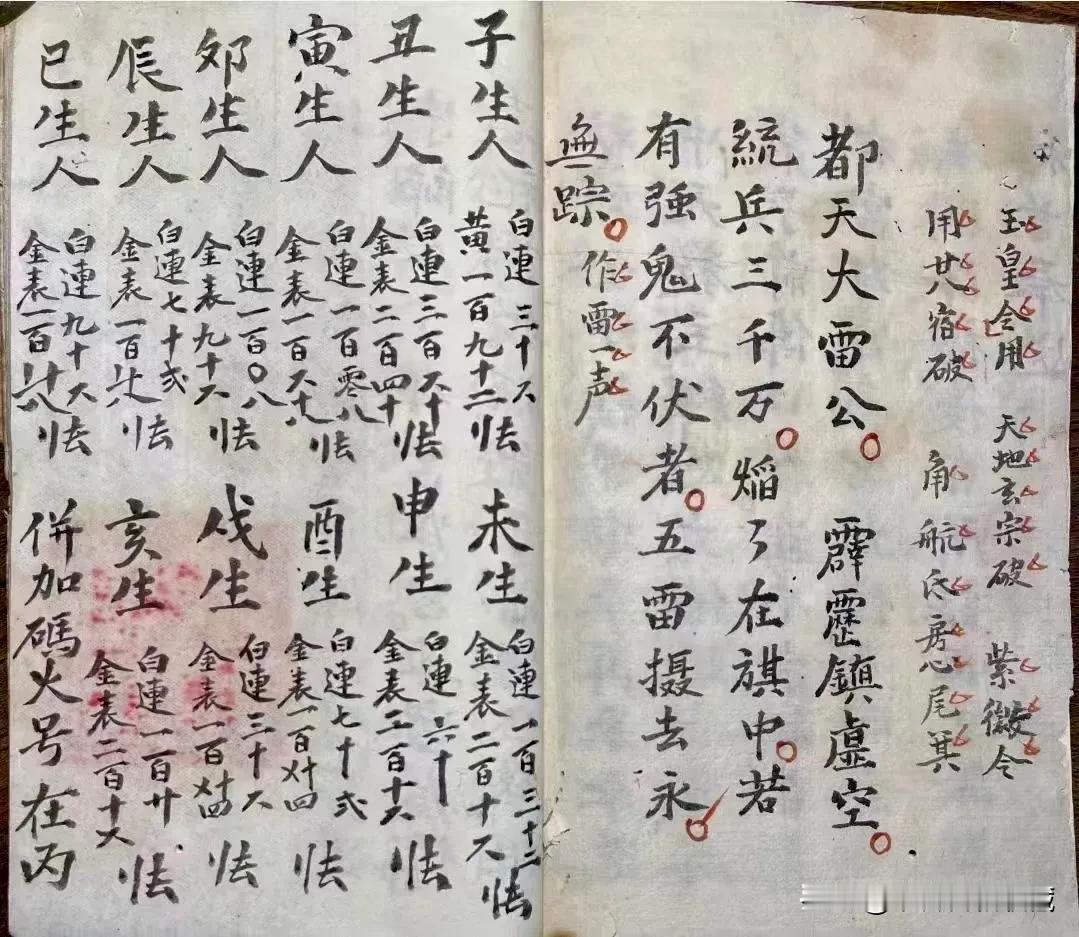 玉皇令用　天地玄宗破　紫微令
用廿八宿破　角航氐房心尾箕
都天大雷公　霹靂鎮虛空
統兵三千万焰了在旗中若
有强鬼不伏者五雷摄去永
無踪　作雷一声
子生人
白連三十六
黄一百九十二怯
未生
白連一百三十二
金表二百十六怯
丑生人
白連三百六十
金表二百四十怯
申生
白連六十
金表三百十六怯
寅生人
白連一百零八
金表一百六十八怯
酉生
白連七十弍
金表一百十四怯
卯生人
白連一百〇八
金表九十六怯
戌生
白連三十六
金表一百十四怯
辰生人
白連七十弍
金表一百廿八怯
亥生
白連一百廿
金表二百十六怯
巳生人
白連九十六
金表一百廿八
併加碼火号在丙